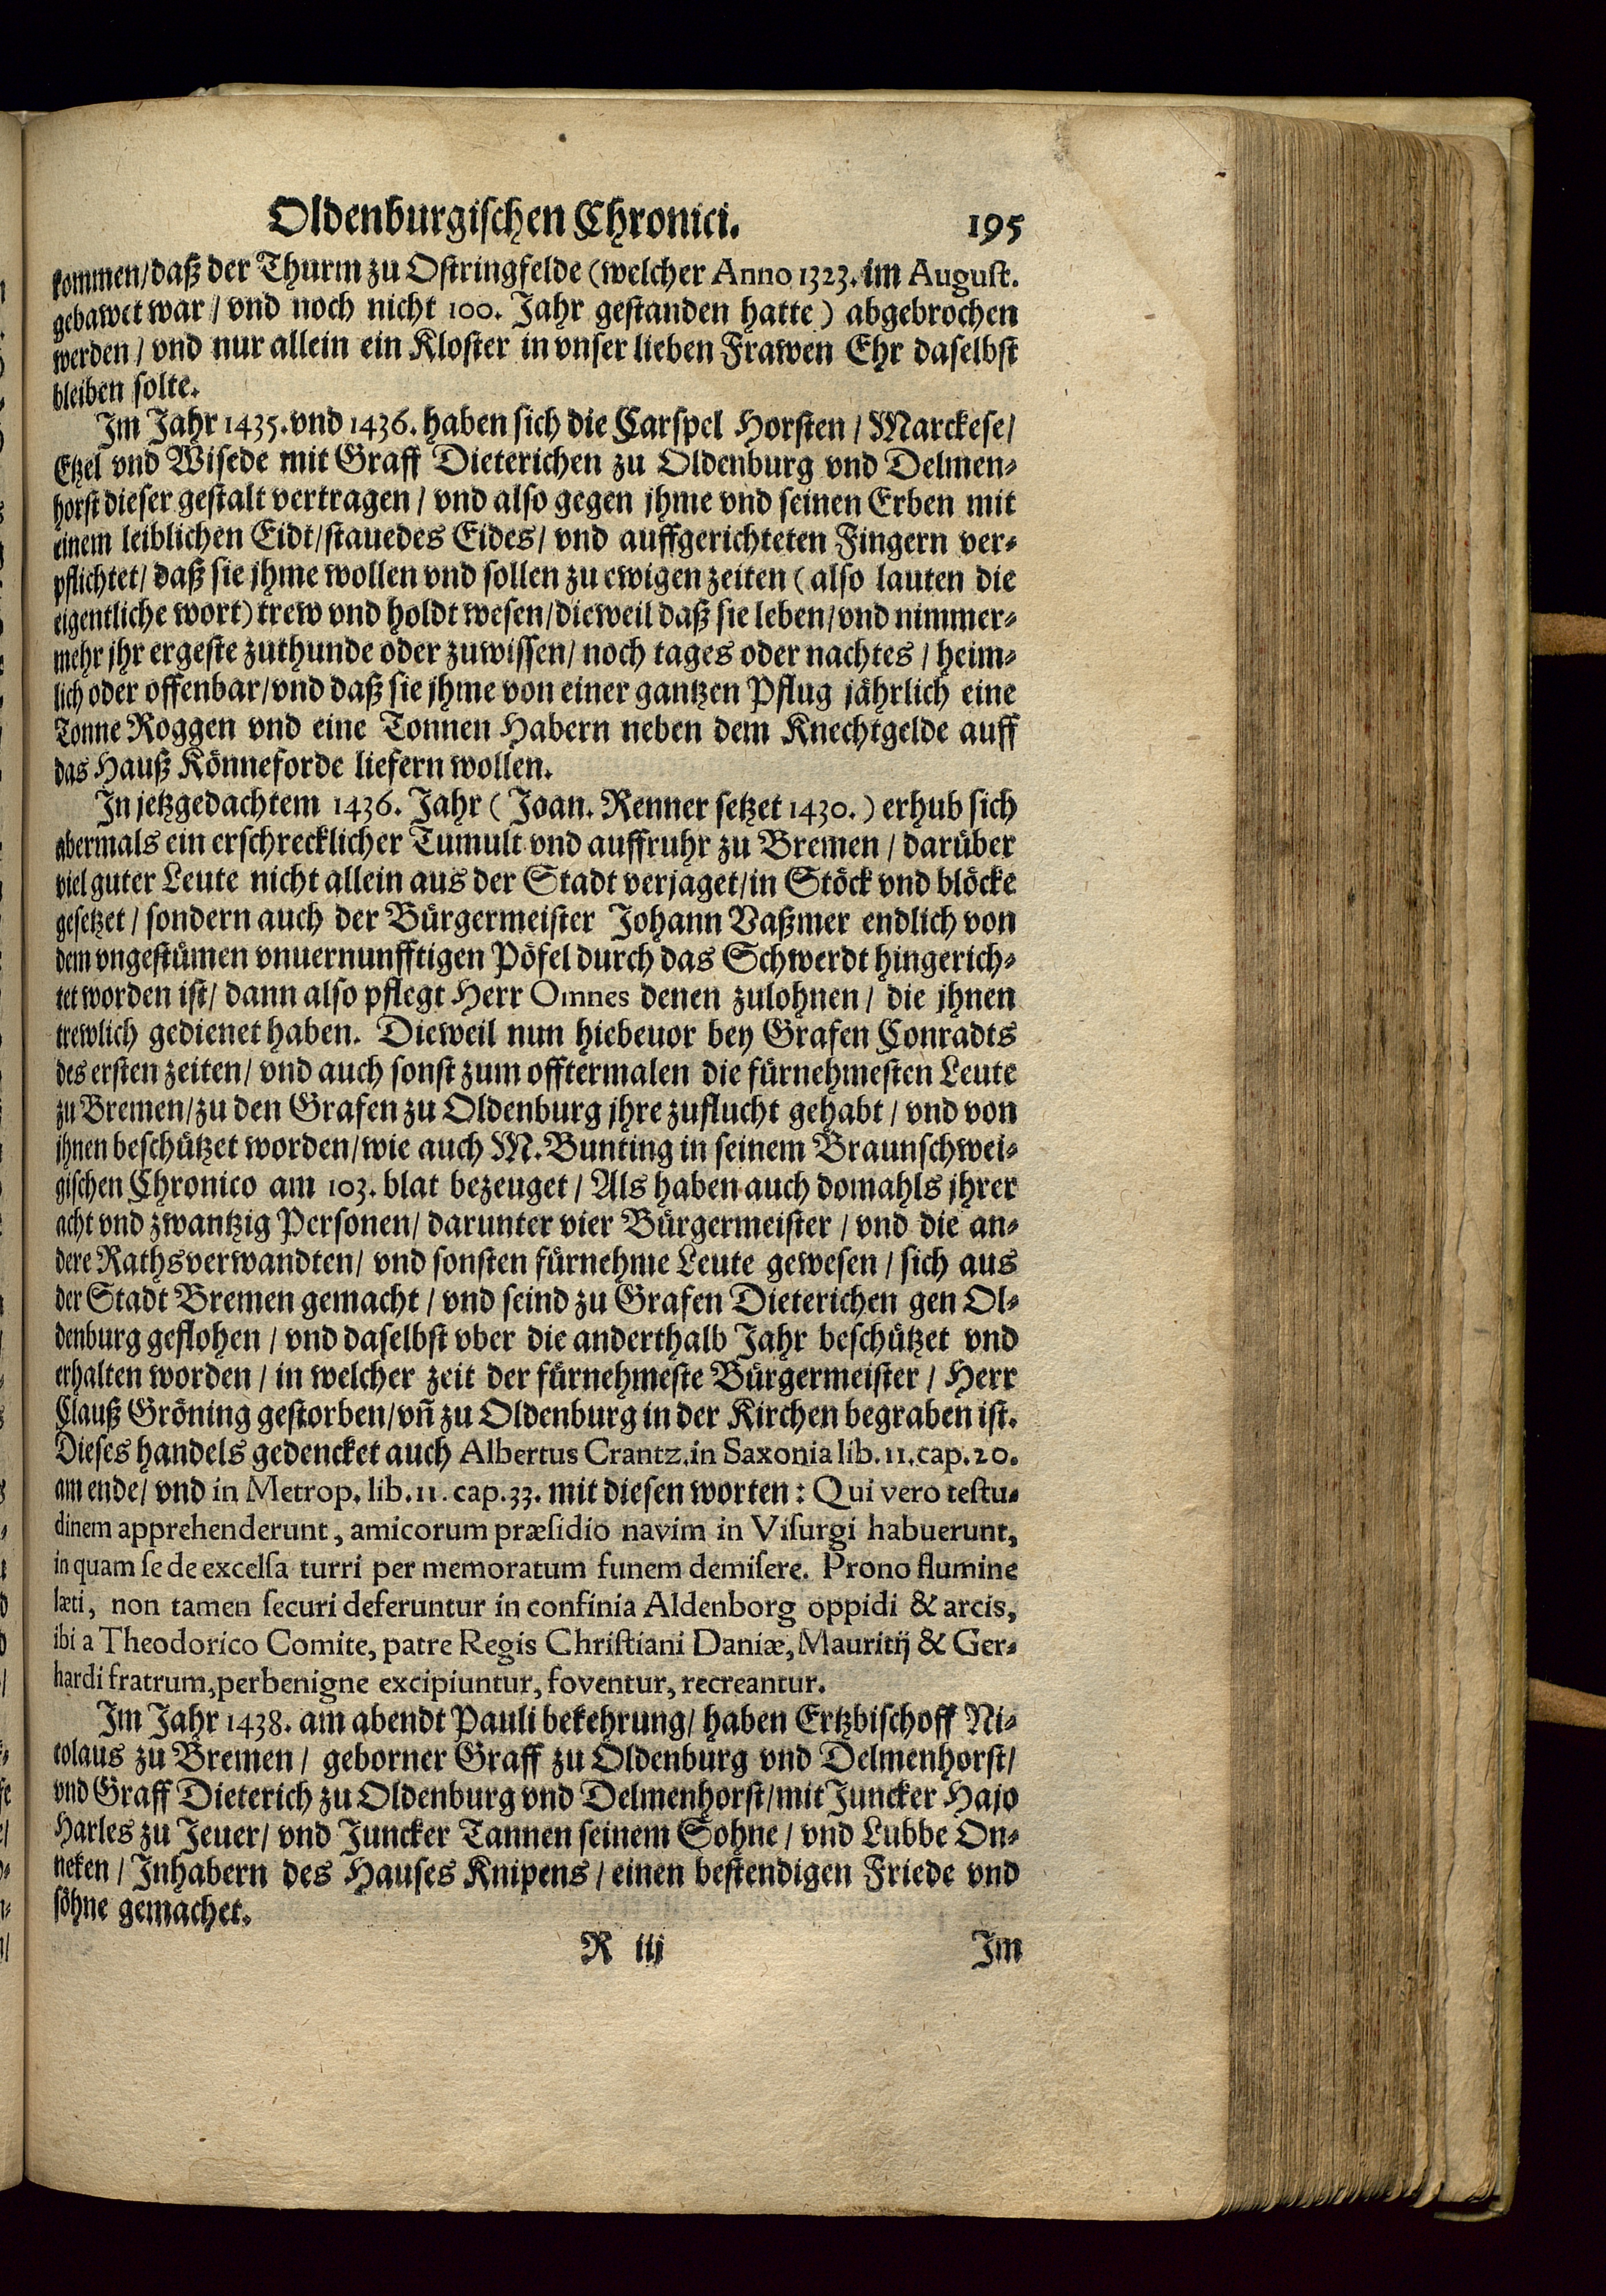 Oldenburgischen Chronici. 195
kommen/daß der Thurm zu Ostringfelde (welcher Anno 1323. im August.
gebawet war / vnd noch nicht 100. Jahr gestanden hatte) abgebrochen
werden / vnd nur allein ein Kloster in vnser lieben Frawen Ehr daselbst
bleiben solte.
Im Jahr 1435. vnd 1436. haben sich die Carspel Horsten / Marckese/
Etzel vnd Wisede mit Graff Dieterichen zu Oldenburg vnd Delmen-
horst dieser gestalt vertragen / vnd also gegen jhme vnd seinen Erben mit
einem leiblichen Eidt/stauedes Eides/ vnd auffgerichteten Fingern ver-
pflichtet/ daß sie jhme wollen vnd sollen zu ewigen zeiten (also lauten die
eigentliche wort) trew vnd holdt wesen/dieweil daß sie leben/vnd nimmer-
mehr jhr ergeste zuthunde oder zuwissen/ noch tages oder nachtes / heim-
lich oder offenbar/vnd daß sie jhme von einer gantzen Pflug jährlich eine
Tonne Roggen vnd eine Tonnen Habern neben dem Knechtgelde auff
das Hauß Könneforde liefern wollen.
In jetzgedachtem 1436. Jahr (Joan. Renner setzet 1430.) erhub sich
abermals ein erschrecklicher Tumult vnd auffruhr zu Bremen / darüber
viel guter Leute nicht allein aus der Stadt verjaget/in Stöck vnd blöcke
gesetzet / sondern auch der Bürgermeister Johann Vaßmer endlich von
dem vngestümen vnuernunfftigen Pöfel durch das Schwerdt hingerich-
tet worden ist/ dann also pflegt Herr Omnes denen zulohnen / die jhnen
trewlich gedienet haben. Dieweil nun hiebeuor bey Grafen Conradts
des ersten zeiten/ vnd auch sonst zum offtermalen die fürnehmesten Leute
zu Bremen/zu den Grafen zu Oldenburg jhre zuflucht gehabt / vnd von
jhnen beschützet worden/wie auch M. Bunting in seinem Braunschwei-
gischen Chronico am 103. blat bezeuget / Als haben auch domahls jhrer
acht vnd zwantzig Personen/ darunter vier Bürgermeister / vnd die an-
dere Rathsverwandten/ vnd sonsten fürnehme Leute gewesen / sich aus
der Stadt Bremen gemacht / vnd seind zu Grafen Dieterichen gen Ol-
denburg geflohen / vnd daselbst vber die anderthalb Jahr beschützet vnd
erhalten worden / in welcher zeit der fürnehmeste Bürgermeister / Herr
Clauß Gröning gestorben/vn̄ zu Oldenburg in der Kirchen begraben ist.
Dieses handels gedencket auch Albertus Crantz. in Saxonia lib. 11. cap. 20.
am ende/ vnd in Metrop. lib. 11. cap. 33. mit diesen worten: Qui vero testu-
dinem apprehenderunt, amicorum præsidio navim in Visurgi habuerunt,
in quam se de excelsa turri per memoratum funem demisere. Prono flumine
læti, non tamen securi deferuntur in confinia Aldenborg oppidi & arcis,
ibi a Theodorico Comite, patre Regis Christiani Daniæ, Mauritij & Ger-
hardi fratrum, perbenigne excipiuntur, foventur, recreantur.
Im Jahr 1438. am abendt Pauli bekehrung/ haben Ertzbischoff Ni-
colaus zu Bremen / geborner Graff zu Oldenburg vnd Delmenhorst/
vnd Graff Dieterich zu Oldenburg vnd Delmenhorst/mit Juncker Hajo
Harles zu Jeuer/ vnd Juncker Tannen seinem Sohne / vnd Lubbe On-
neken / Inhabern des Hauses Knipens / einen bestendigen Friede vnd
söhne gemachet.
R iij Im